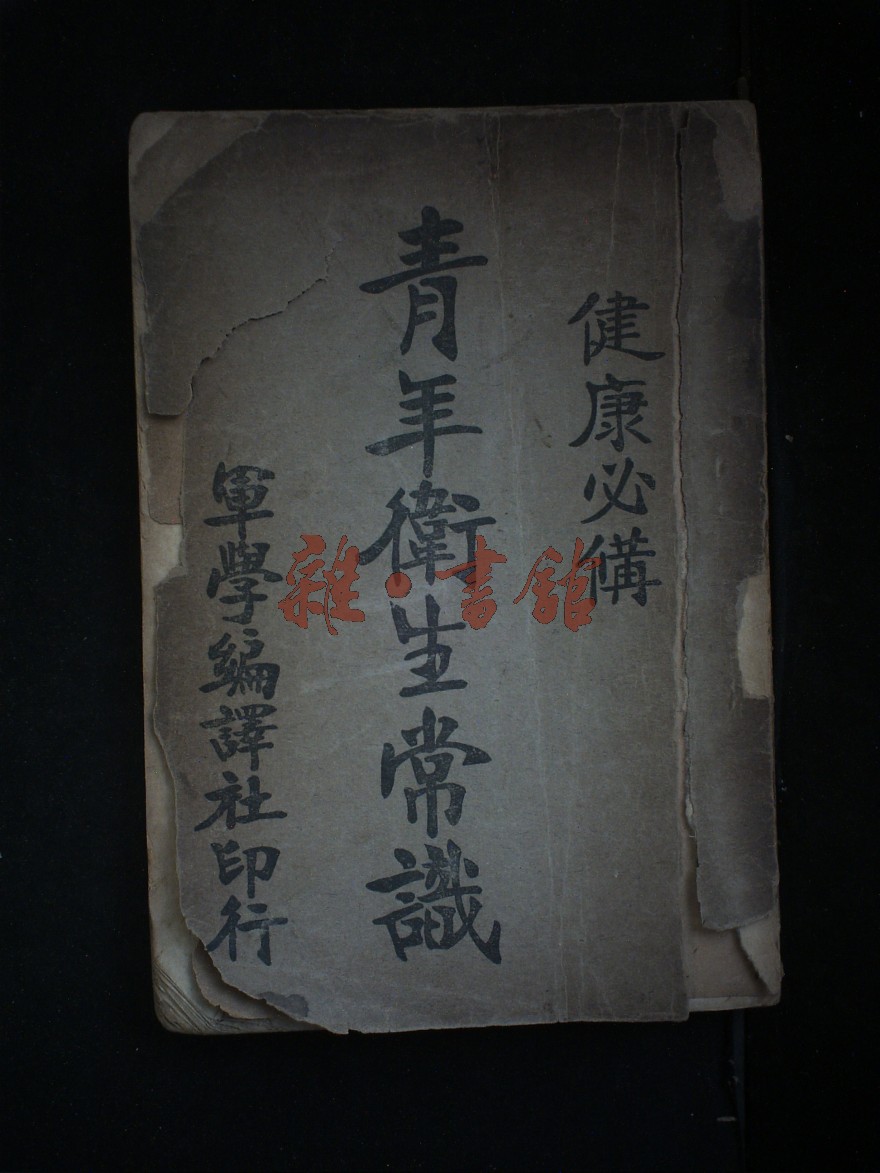 健康必備
青年衛生常識
軍學編譯社印行
雜·書館